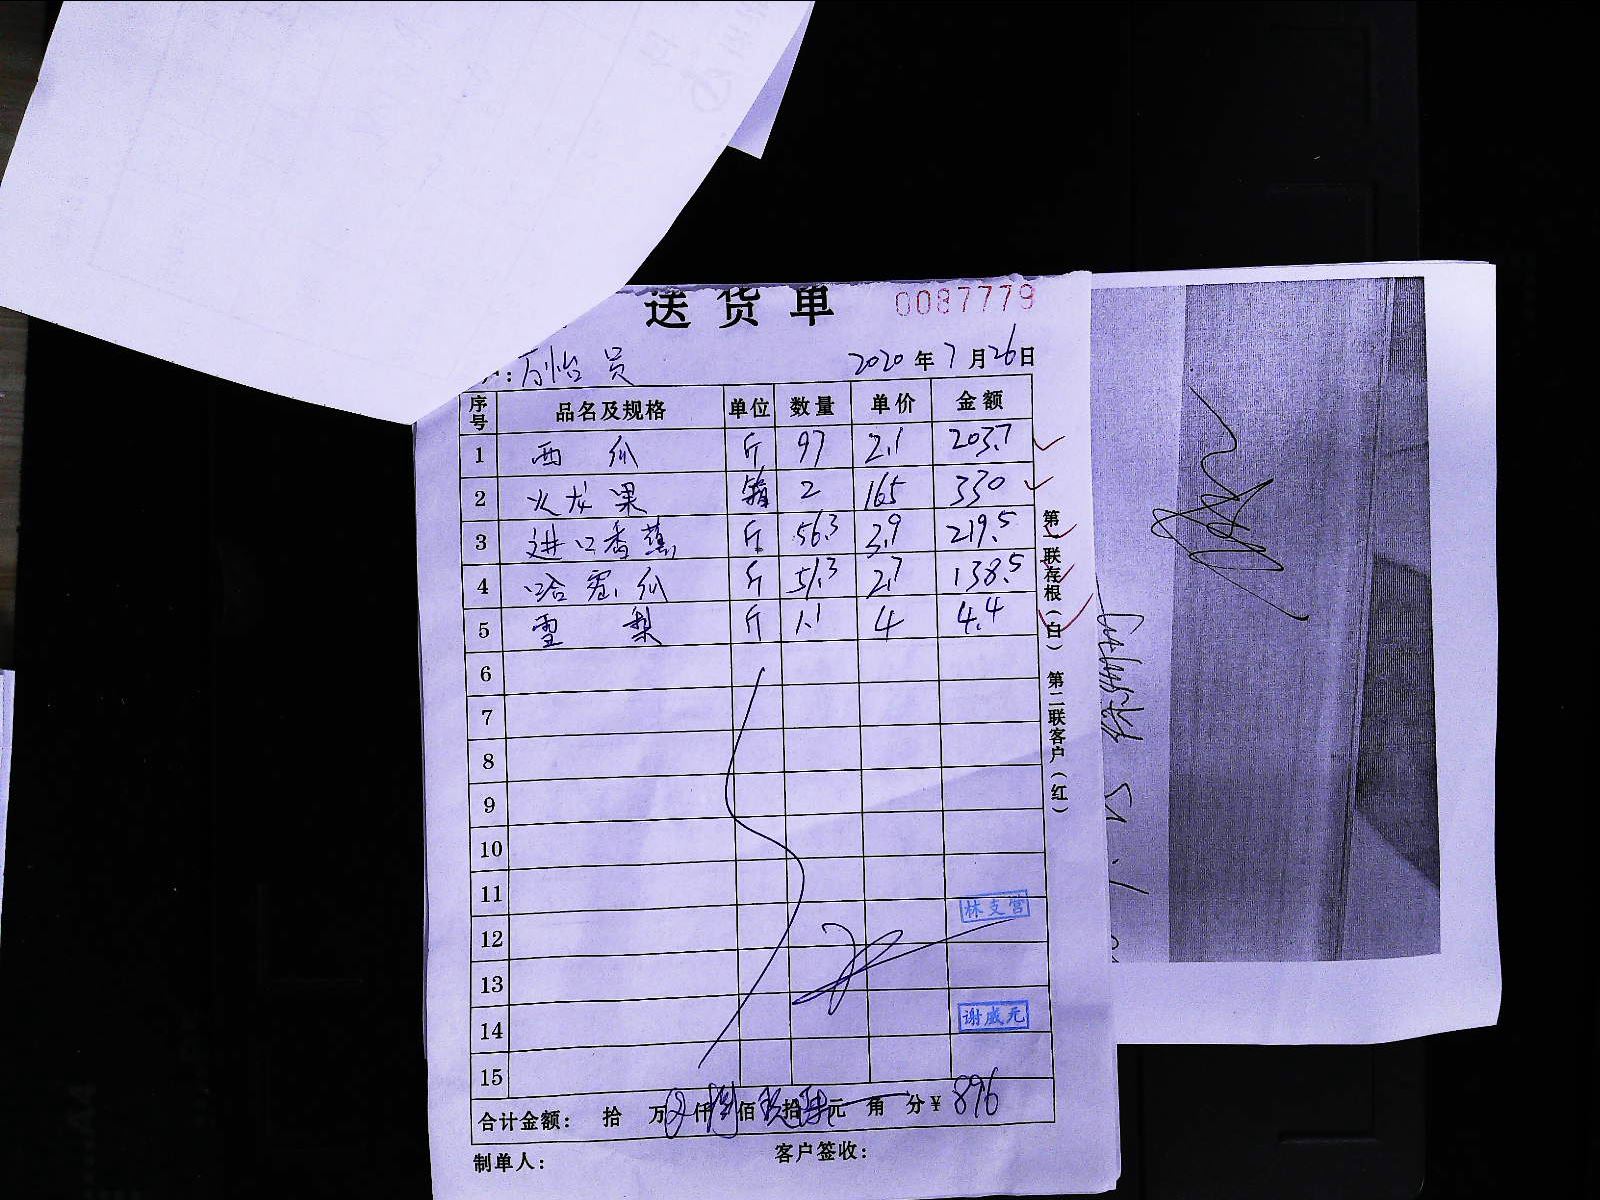 送货单 0087779
户:万怡 员 2020年7月26日
序号 品名及规格 单位 数量 单价 金额
1 西瓜 斤 97 2.1 203.7
2 火龙果 箱 2 165 330
3 进口香蕉 斤 56.3 3.9 219.5
4 哈密瓜 斤 51.3 2.7 138.5
5 雪梨 斤 1.1 4 4.4
6
7
8
9
10
11
12
13
14
15
林支营
谢威元
合计金额: 拾 万 仟捌佰玖拾陆元 角 分¥ 896
制单人: 客户签收:
第一联存根(白) 第二联客户(红)